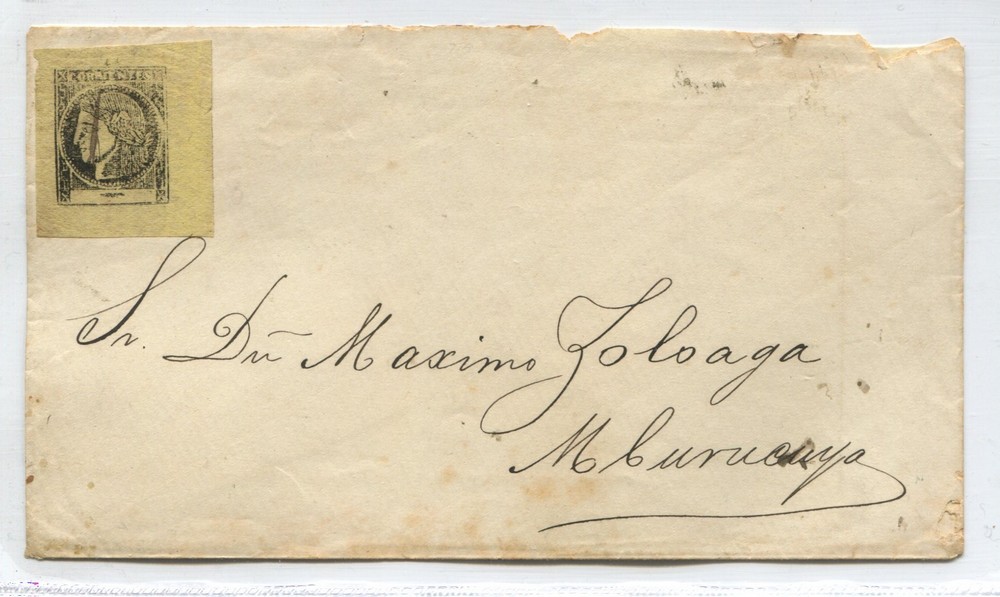 CORRIENTES
Sr. Dn Maximo Zoloaga
Mburucuya